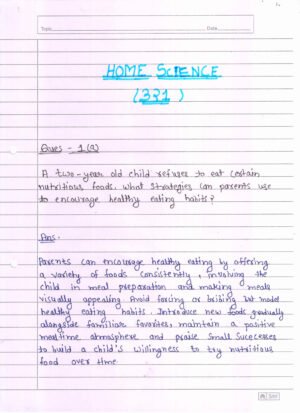 Topic
Date
HOME SCIENCE
(321)
Ques - 1(a)
A two-year old child refuses to eat certain
nutritious foods. What strategies can parents use
to encourage healthy eating habits?
Ans.
Parents can encourage healthy eating by offering
a variety of foods consistently, involving the
child in meal preparation and making meals
visually appealing. Avoid forcing or bribing but model
healthy eating habits. Introduce new foods gradually
alongside familiar favorites, maintain a positive
mealtime atmosphere and praise small successes
to build a child's willingness to try nutritious
food over time